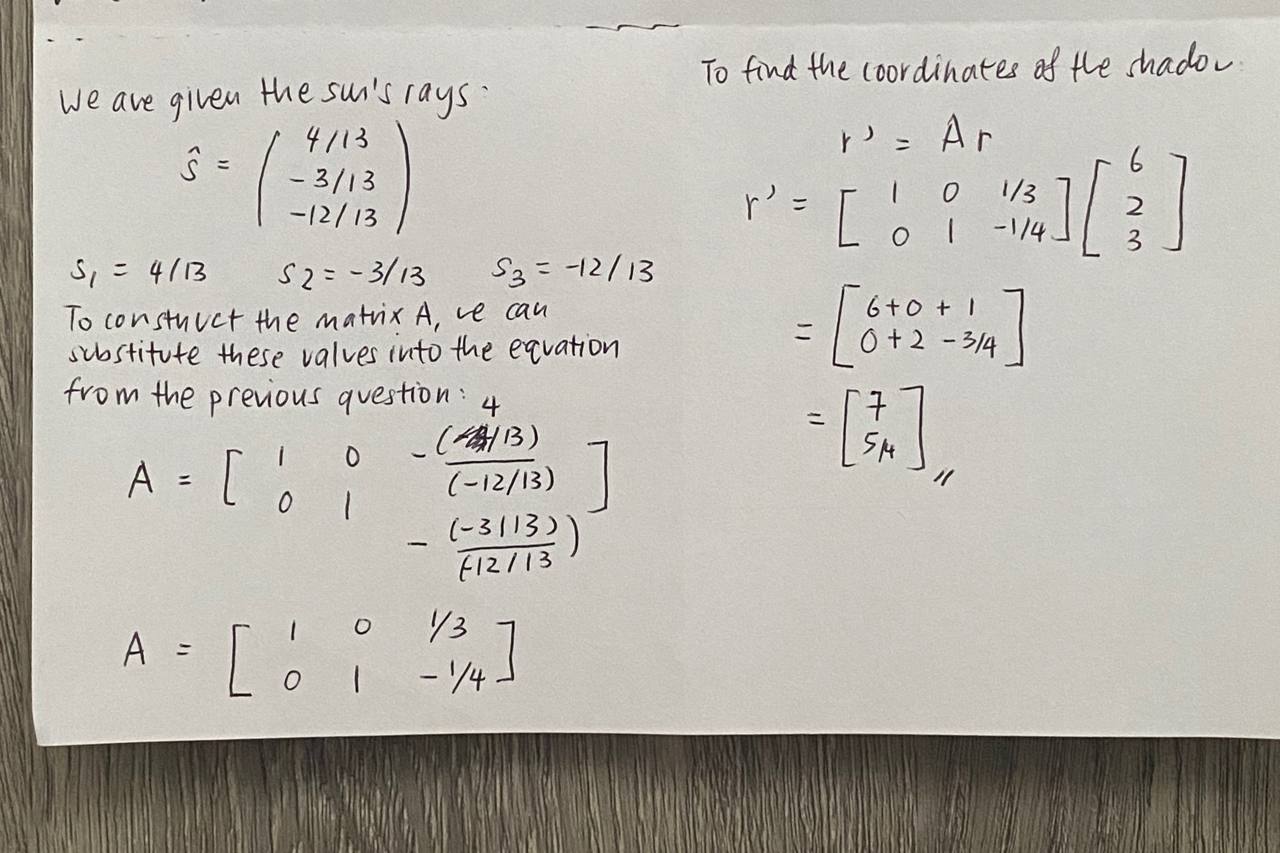 We are given the sun's rays:
ŝ = ( 4/13
-3/13
-12/13 )
S₁ = 4/13 S₂ = -3/13 S₃ = -12/13
To constuct the matrix A, we can
substitute these values into the equation
from the previous question:
A = [ 1 0 -(4/13)/(-12/13) ]
0 1 -(-3/13)/(-12/13)
A = [ 1 0 1/3 ]
0 1 -1/4
To find the coordinates of the shadow:
r' = Ar
r' = [ 1 0 1/3 ] [ 6 ]
0 1 -1/4 2
3
= [ 6+0+1 ]
0+2-3/4
= [ 7 ]
5/4 //